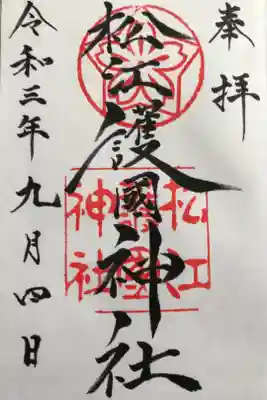 奉拝
松江護國神社
松江護國神社
令和三年九月四日